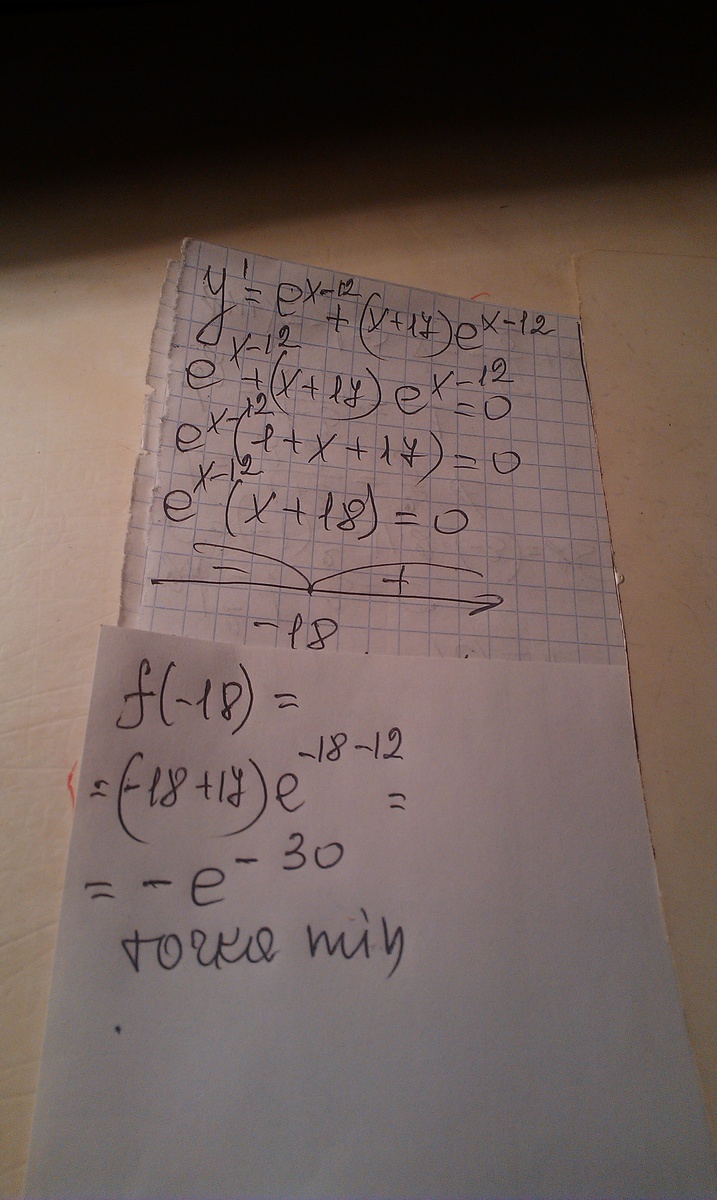 y' = e^{x-12} + (x+17)e^{x-12}
e^{x-12} + (x+17) e^{x-12} = 0
e^{x-12}(1+x+17) = 0
e^{x-12}(x+18) = 0
- +
-18
f(-18) =
= (-18+17)e^{-18-12} =
= -e^{-30}
точка min